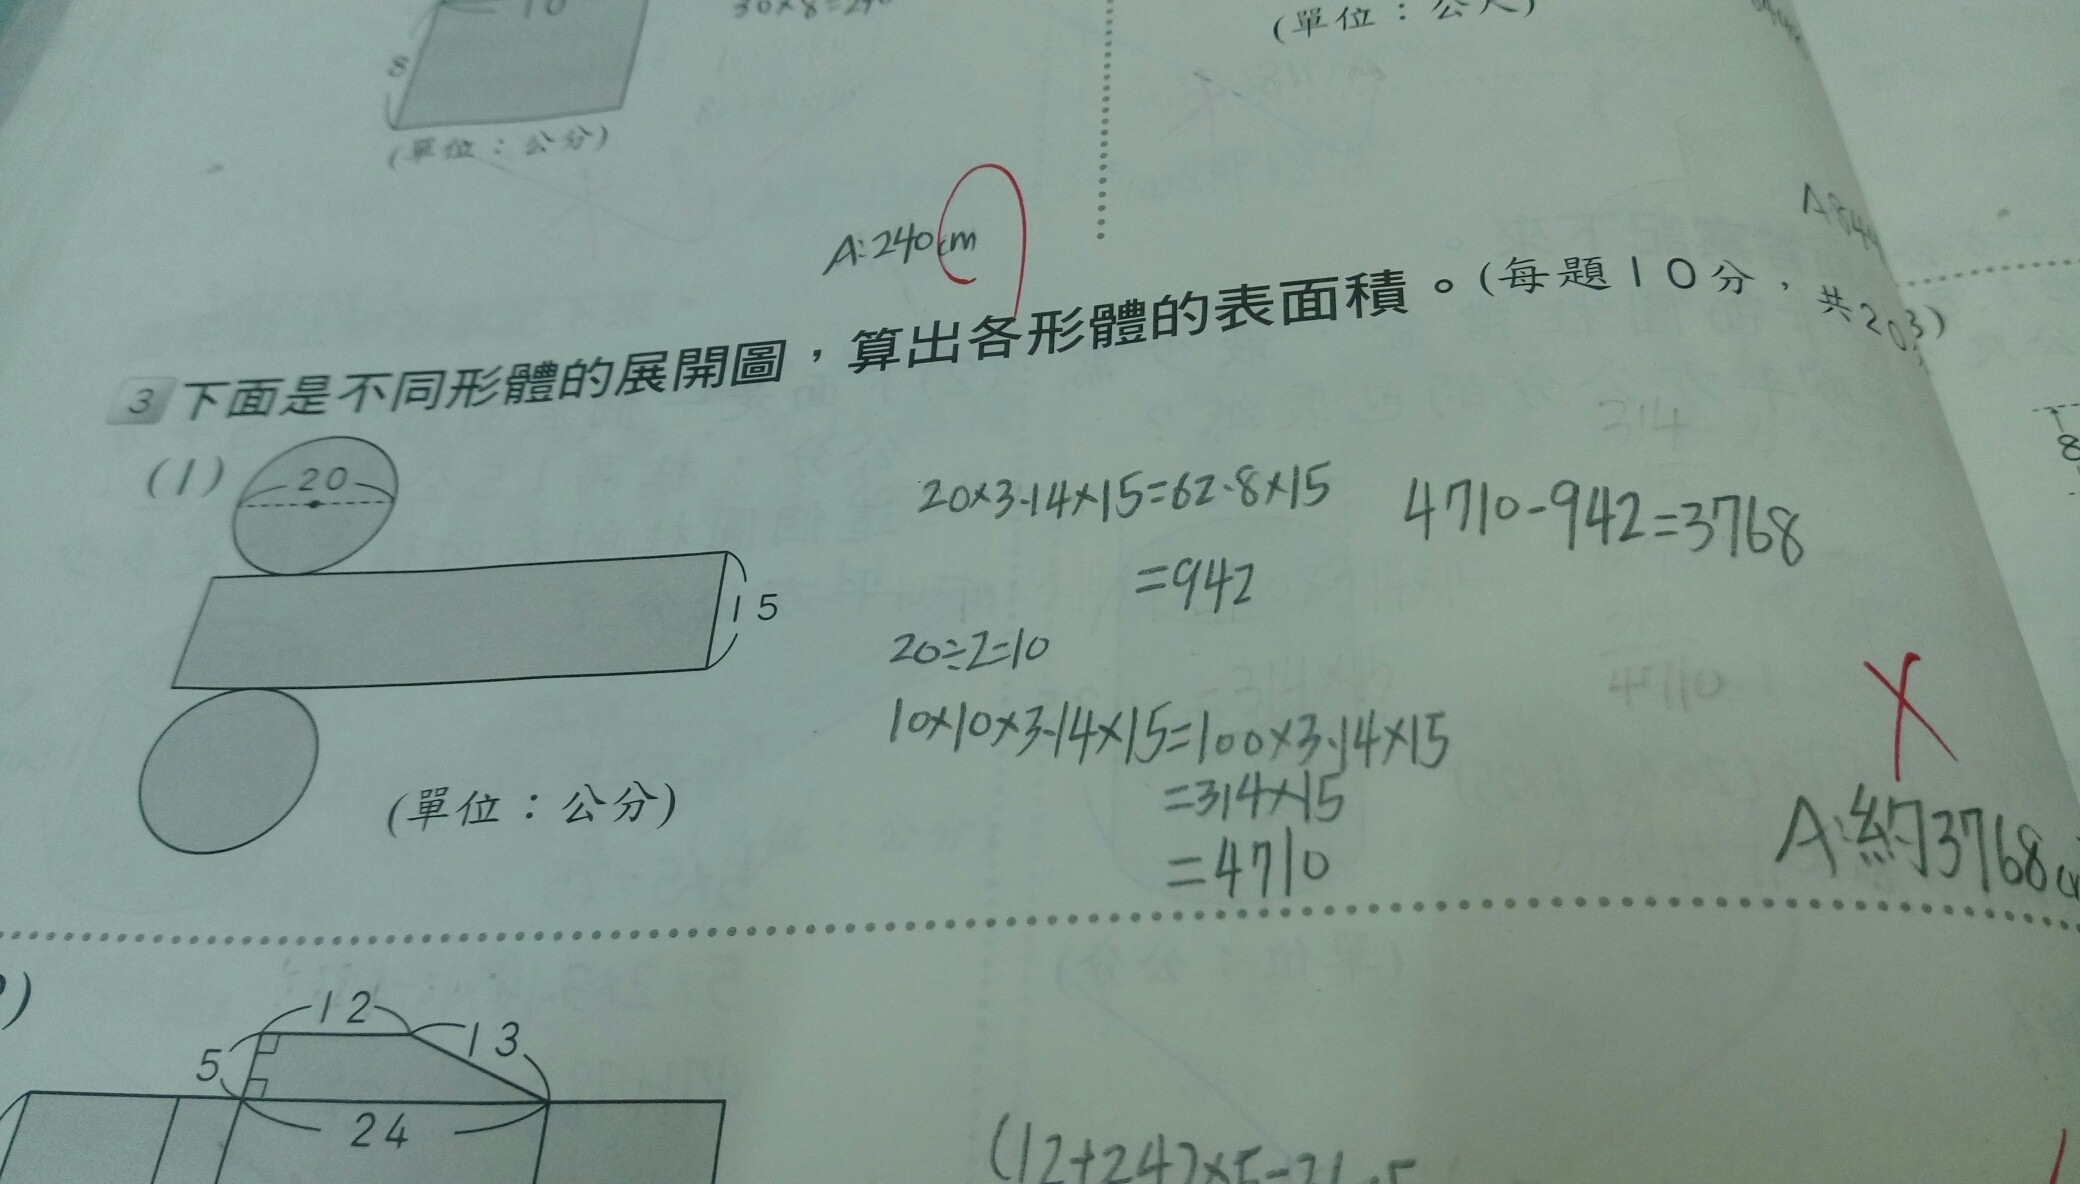 10
8
(單位：公分)
30×8=240
(單位：公尺)
A:240cm
3 下面是不同形體的展開圖，算出各形體的表面積。(每題10分，共20分)
(1)
20
15
(單位：公分)
20×3.14×15=62.8×15
=942
20÷2=10
10×10×3.14×15=100×3.14×15
=314×15
=4710
4710-942=3768
A:約3768
12
13
5
24
8